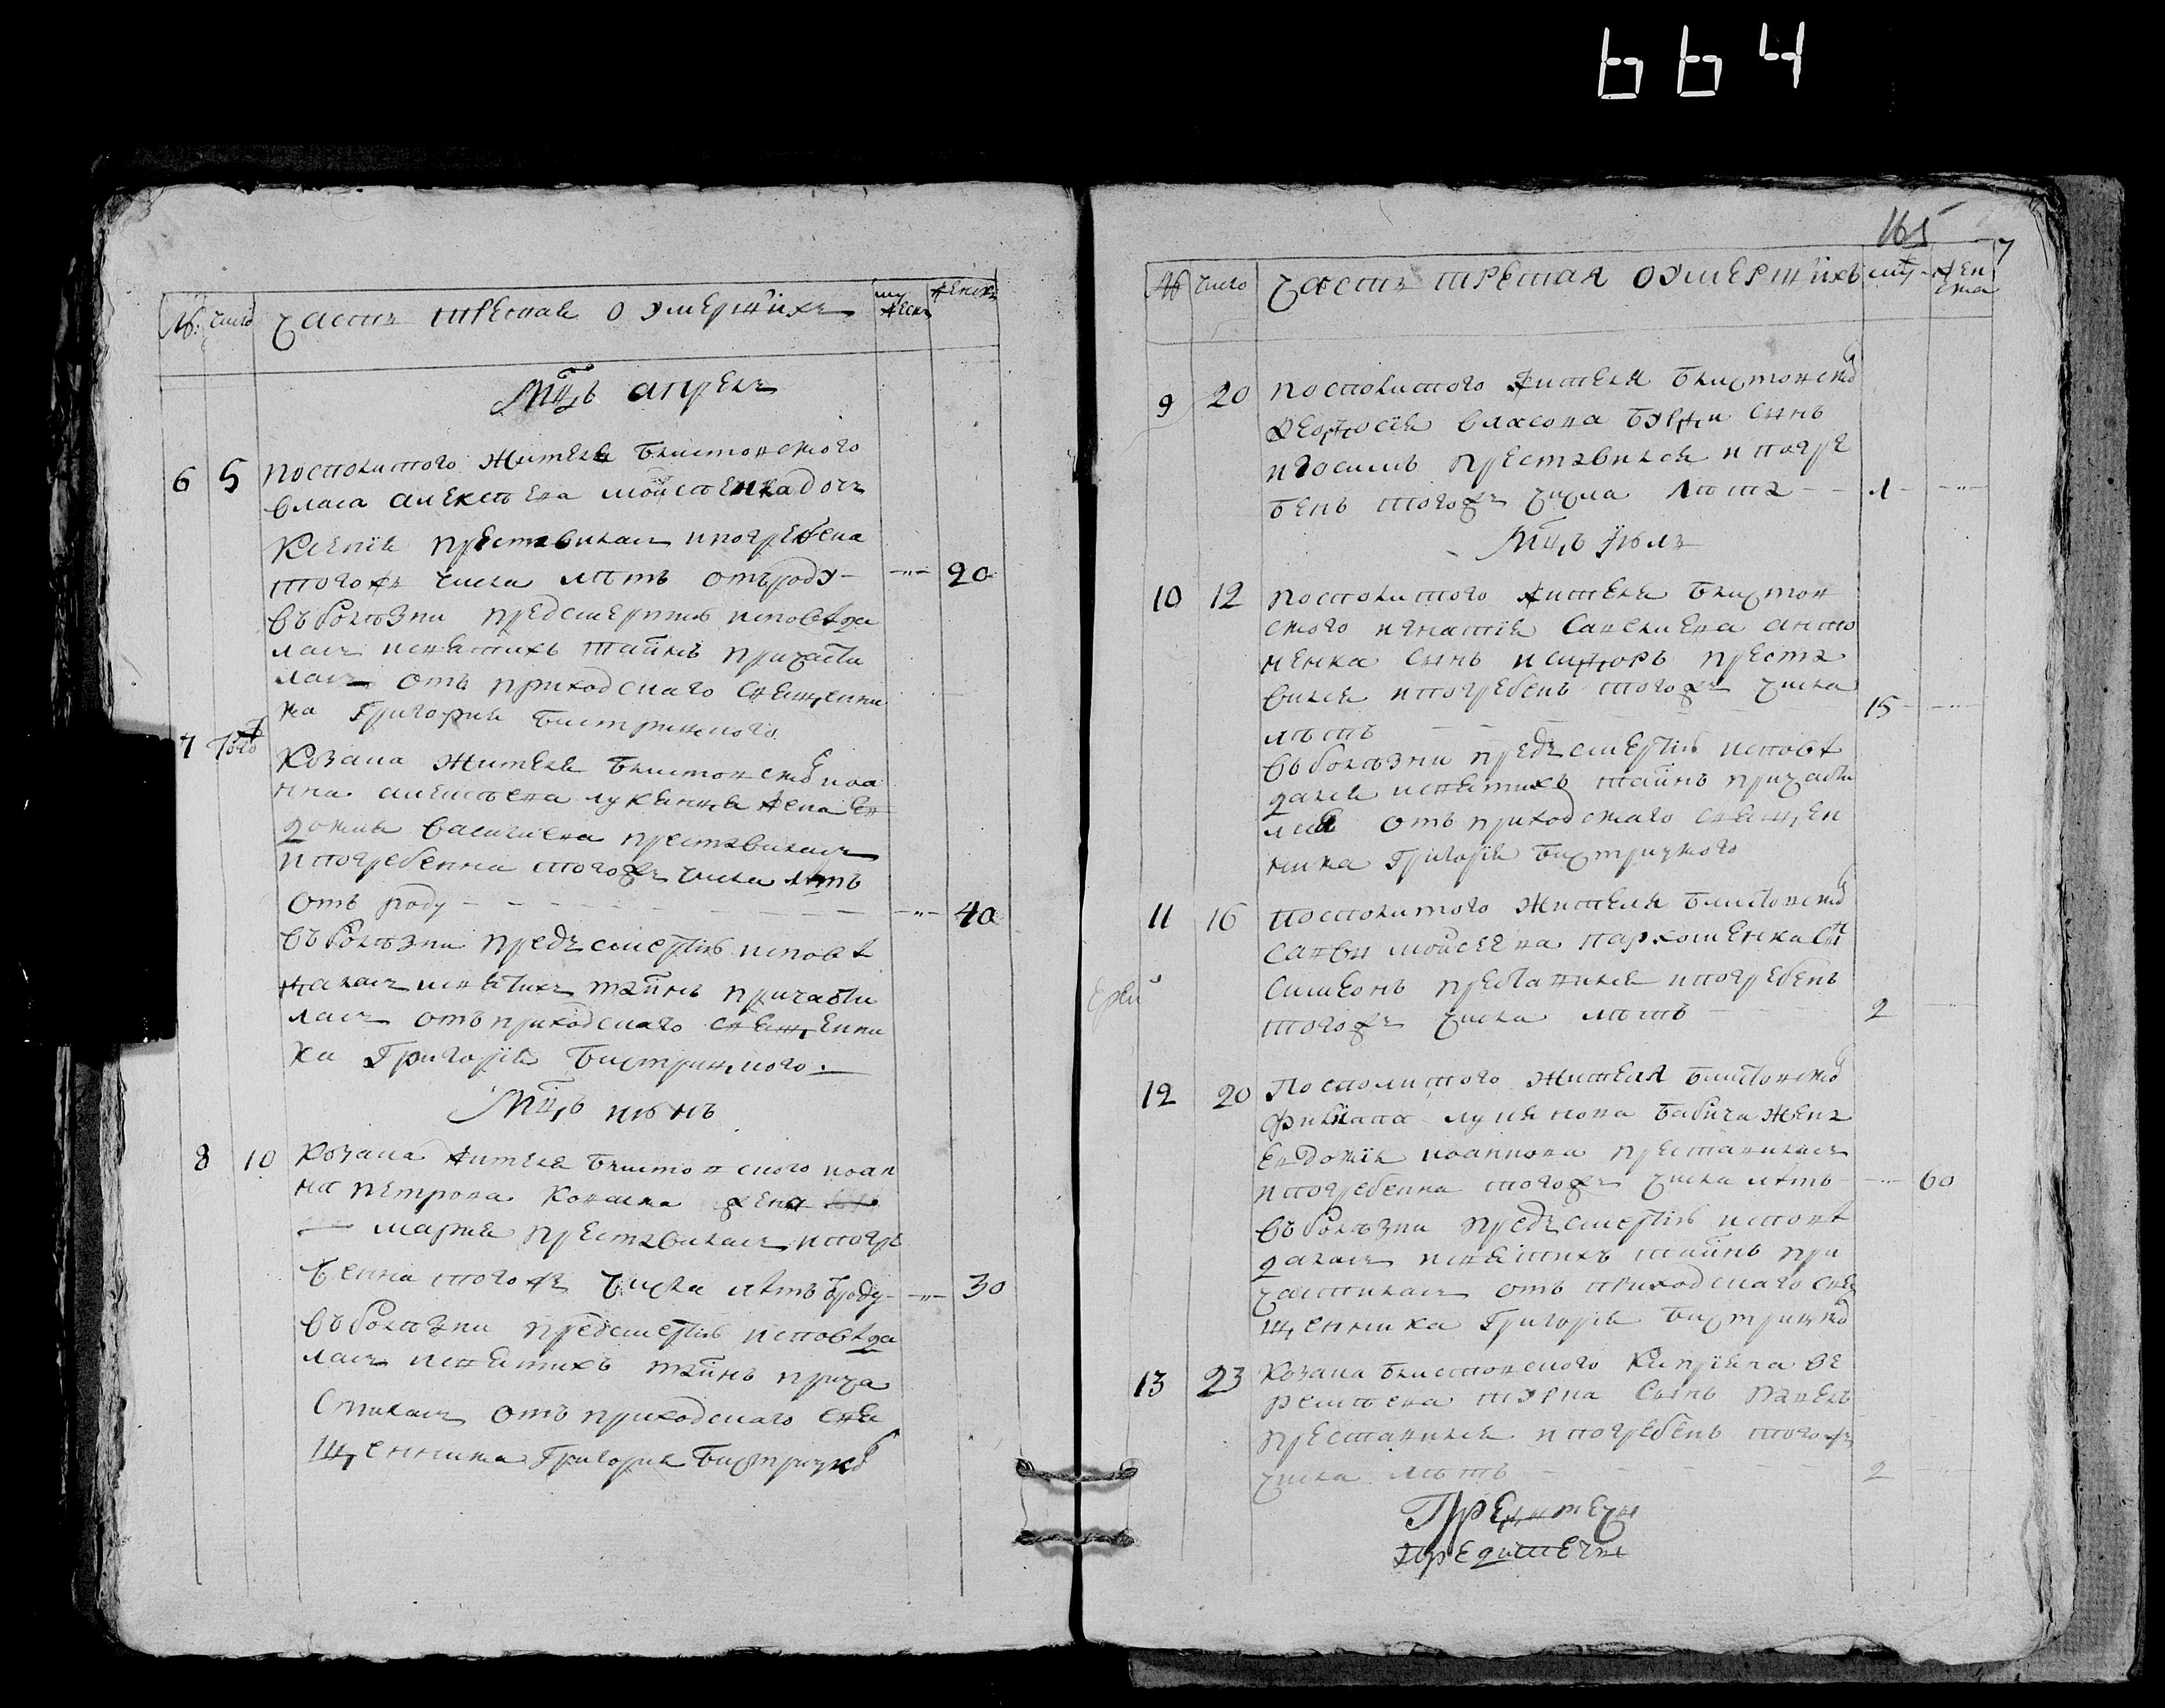 664
№ число Часть третая о умерших муж Женск
Мц̃ъ апрель
6 5 посполитого жителя блистовского
власа алексѣева мойсѣенка дочь
Ксения преставилась и погребена
того ж числа лѣтъ отъ роду 20
въ болѣзни предсмертнѣ исповѣда
лась и святихъ таинъ причасти
лась отъ приходскаго священни
ка Григория Бистрицкого
7 того ж
Козака жителя блистовског иоа
нна алексѣева жена ев
докия василиева преставилась
и погребенна того ж числа лѣтъ
отъ роду 40
въ болѣзни предъ смертию исповѣ
далась и святихъ таинъ причасти
лась отъ приходскаго священни
ка Григория Бистрицкого
Мц̃ъ июнь
8 10 Козака жителя блистовского иоан
на петрова жена
мария преставилась и погре
бенна того ж числа лѣтъ ѿ роду 30
въ болѣзни предсмертию исповѣда
лась и святихъ таинъ прича
стилась отъ приходскаго свя
щенника Григория Бистрицког
165
7
№ число Часть третая о умершихъ муж Жен
ска
9 20 посполитого жителя блистовског
феодосия власова сынъ
преставился и погре
бенъ того ж числа лѣта 1
Мц̃ъ июль
10 12 посполитого жителя блистов
ского игнатия савелиева анто
ненка сынъ исидоръ преста
вился и погребенъ того ж числа
лѣтъ 15
въ болѣзни предъ смертию исповѣ
дался и святихъ таинъ причасти
лся отъ приходскаго священ
ника Григория Бистрицкого
11 16 Посполитого жителя блистовског
савви мойсеева пархоменка сн̃ъ
симеонъ преставился и погребенъ
того ж числа лѣтъ 2
12 20 Посполитого жителя блистовског
филиппа лукянова бабича жена
Евдокия иоаннова преставилась
и погребенна того ж числа лѣтъ 60
въ болѣзни предъ смертию исповѣ
далась и святихъ таинъ при
частилась отъ приходскаго свя
щенника Григория Бистрицког
13 23 Козака блистовского
сынъ павелъ
преставился и погребенъ того ж
числа лѣтъ 2